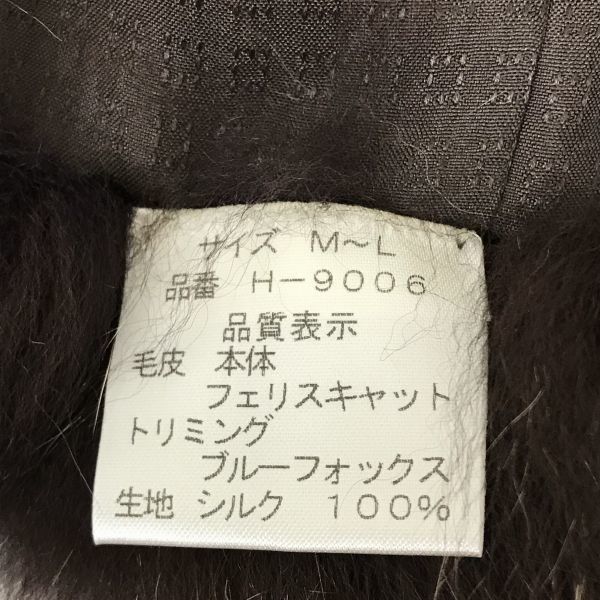 サイズ M〜L
品番 H－9006
品質表示
毛皮 本体
フェリスキャット
トリミング
ブルーフォックス
生地 シルク 100%